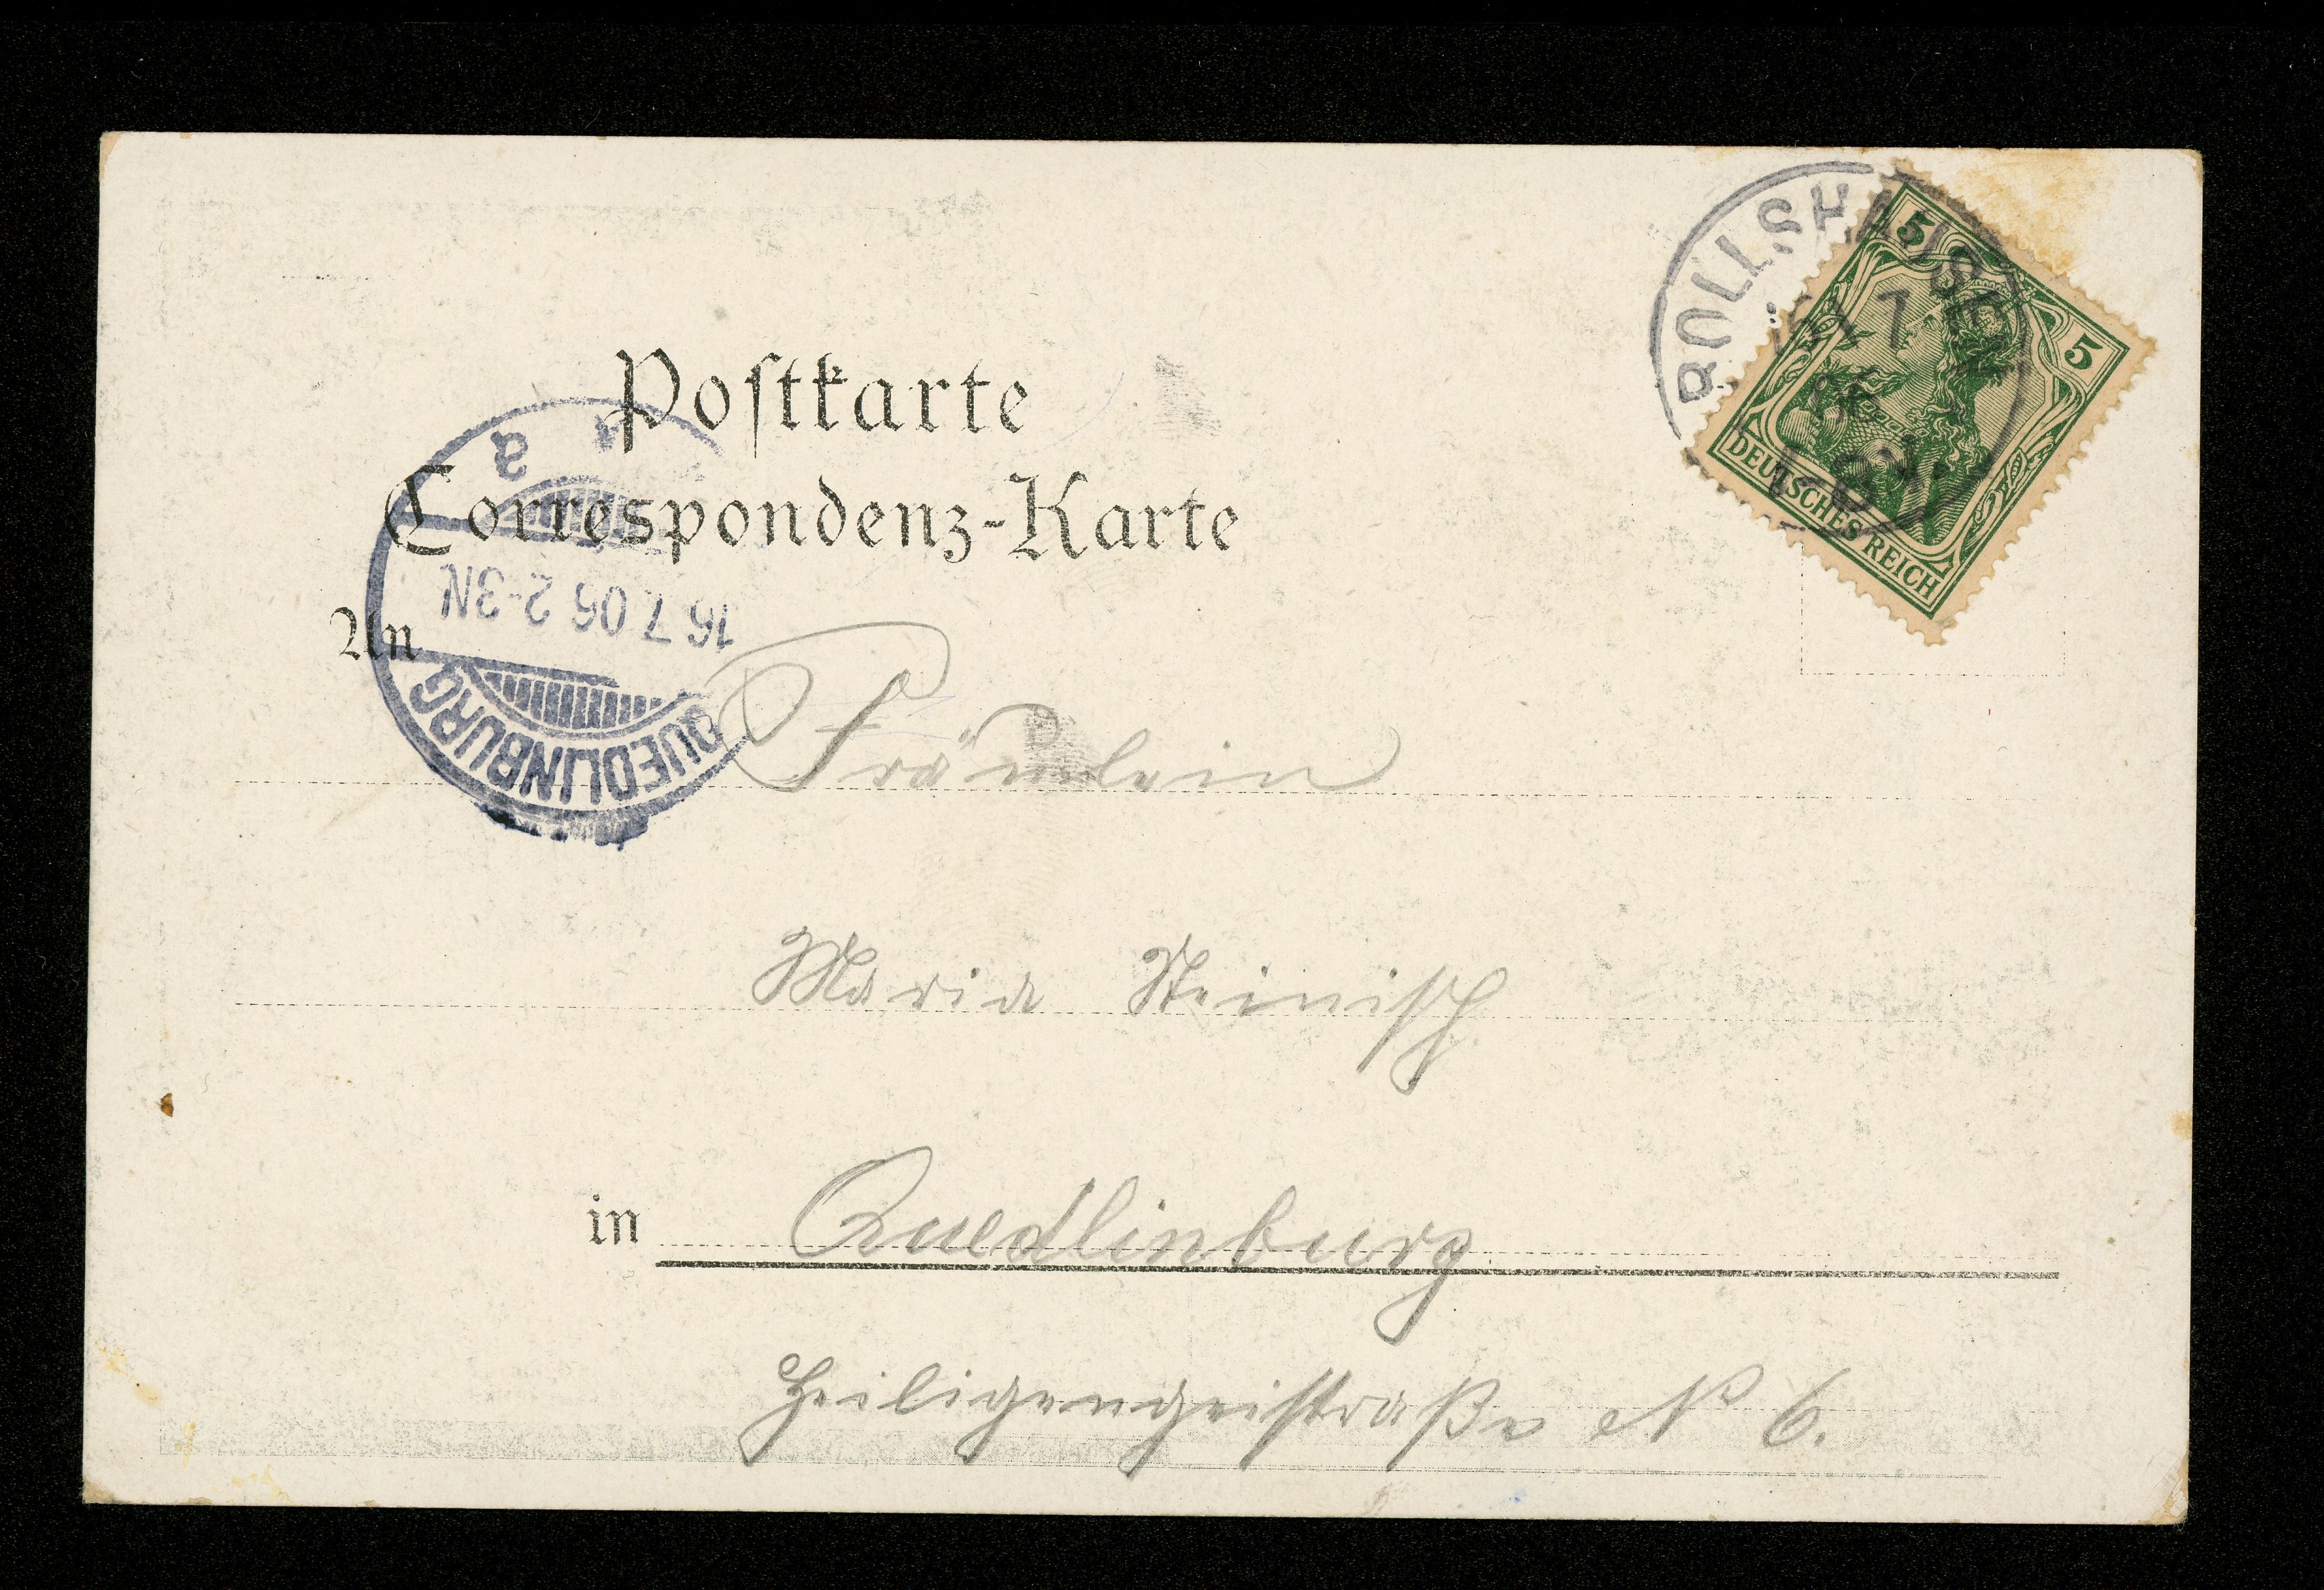 Postkarte
Correspondenz-Karte
BOLLSHAUSEN
7
5
5
DEUTSCHES REICH
QUEDLINBURG
16 7 06 2-3N
a
An
Fräulein
Maria Steinisch
in Quedlinburg
Heiligengeiststraße N 6.